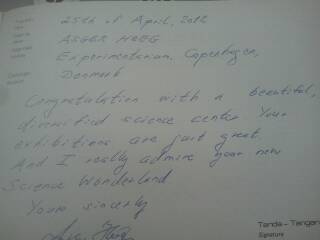 25th of April, 2012
ASGER HØEG
Experimentarium, Copenhagen,
Denmark
Congratulation with a beautiful,
diversified science center. Your
exhibitions are just great.
And I really admire your new
Science Wonderland
Yours sincerly
Tanda - Tangan
Signature